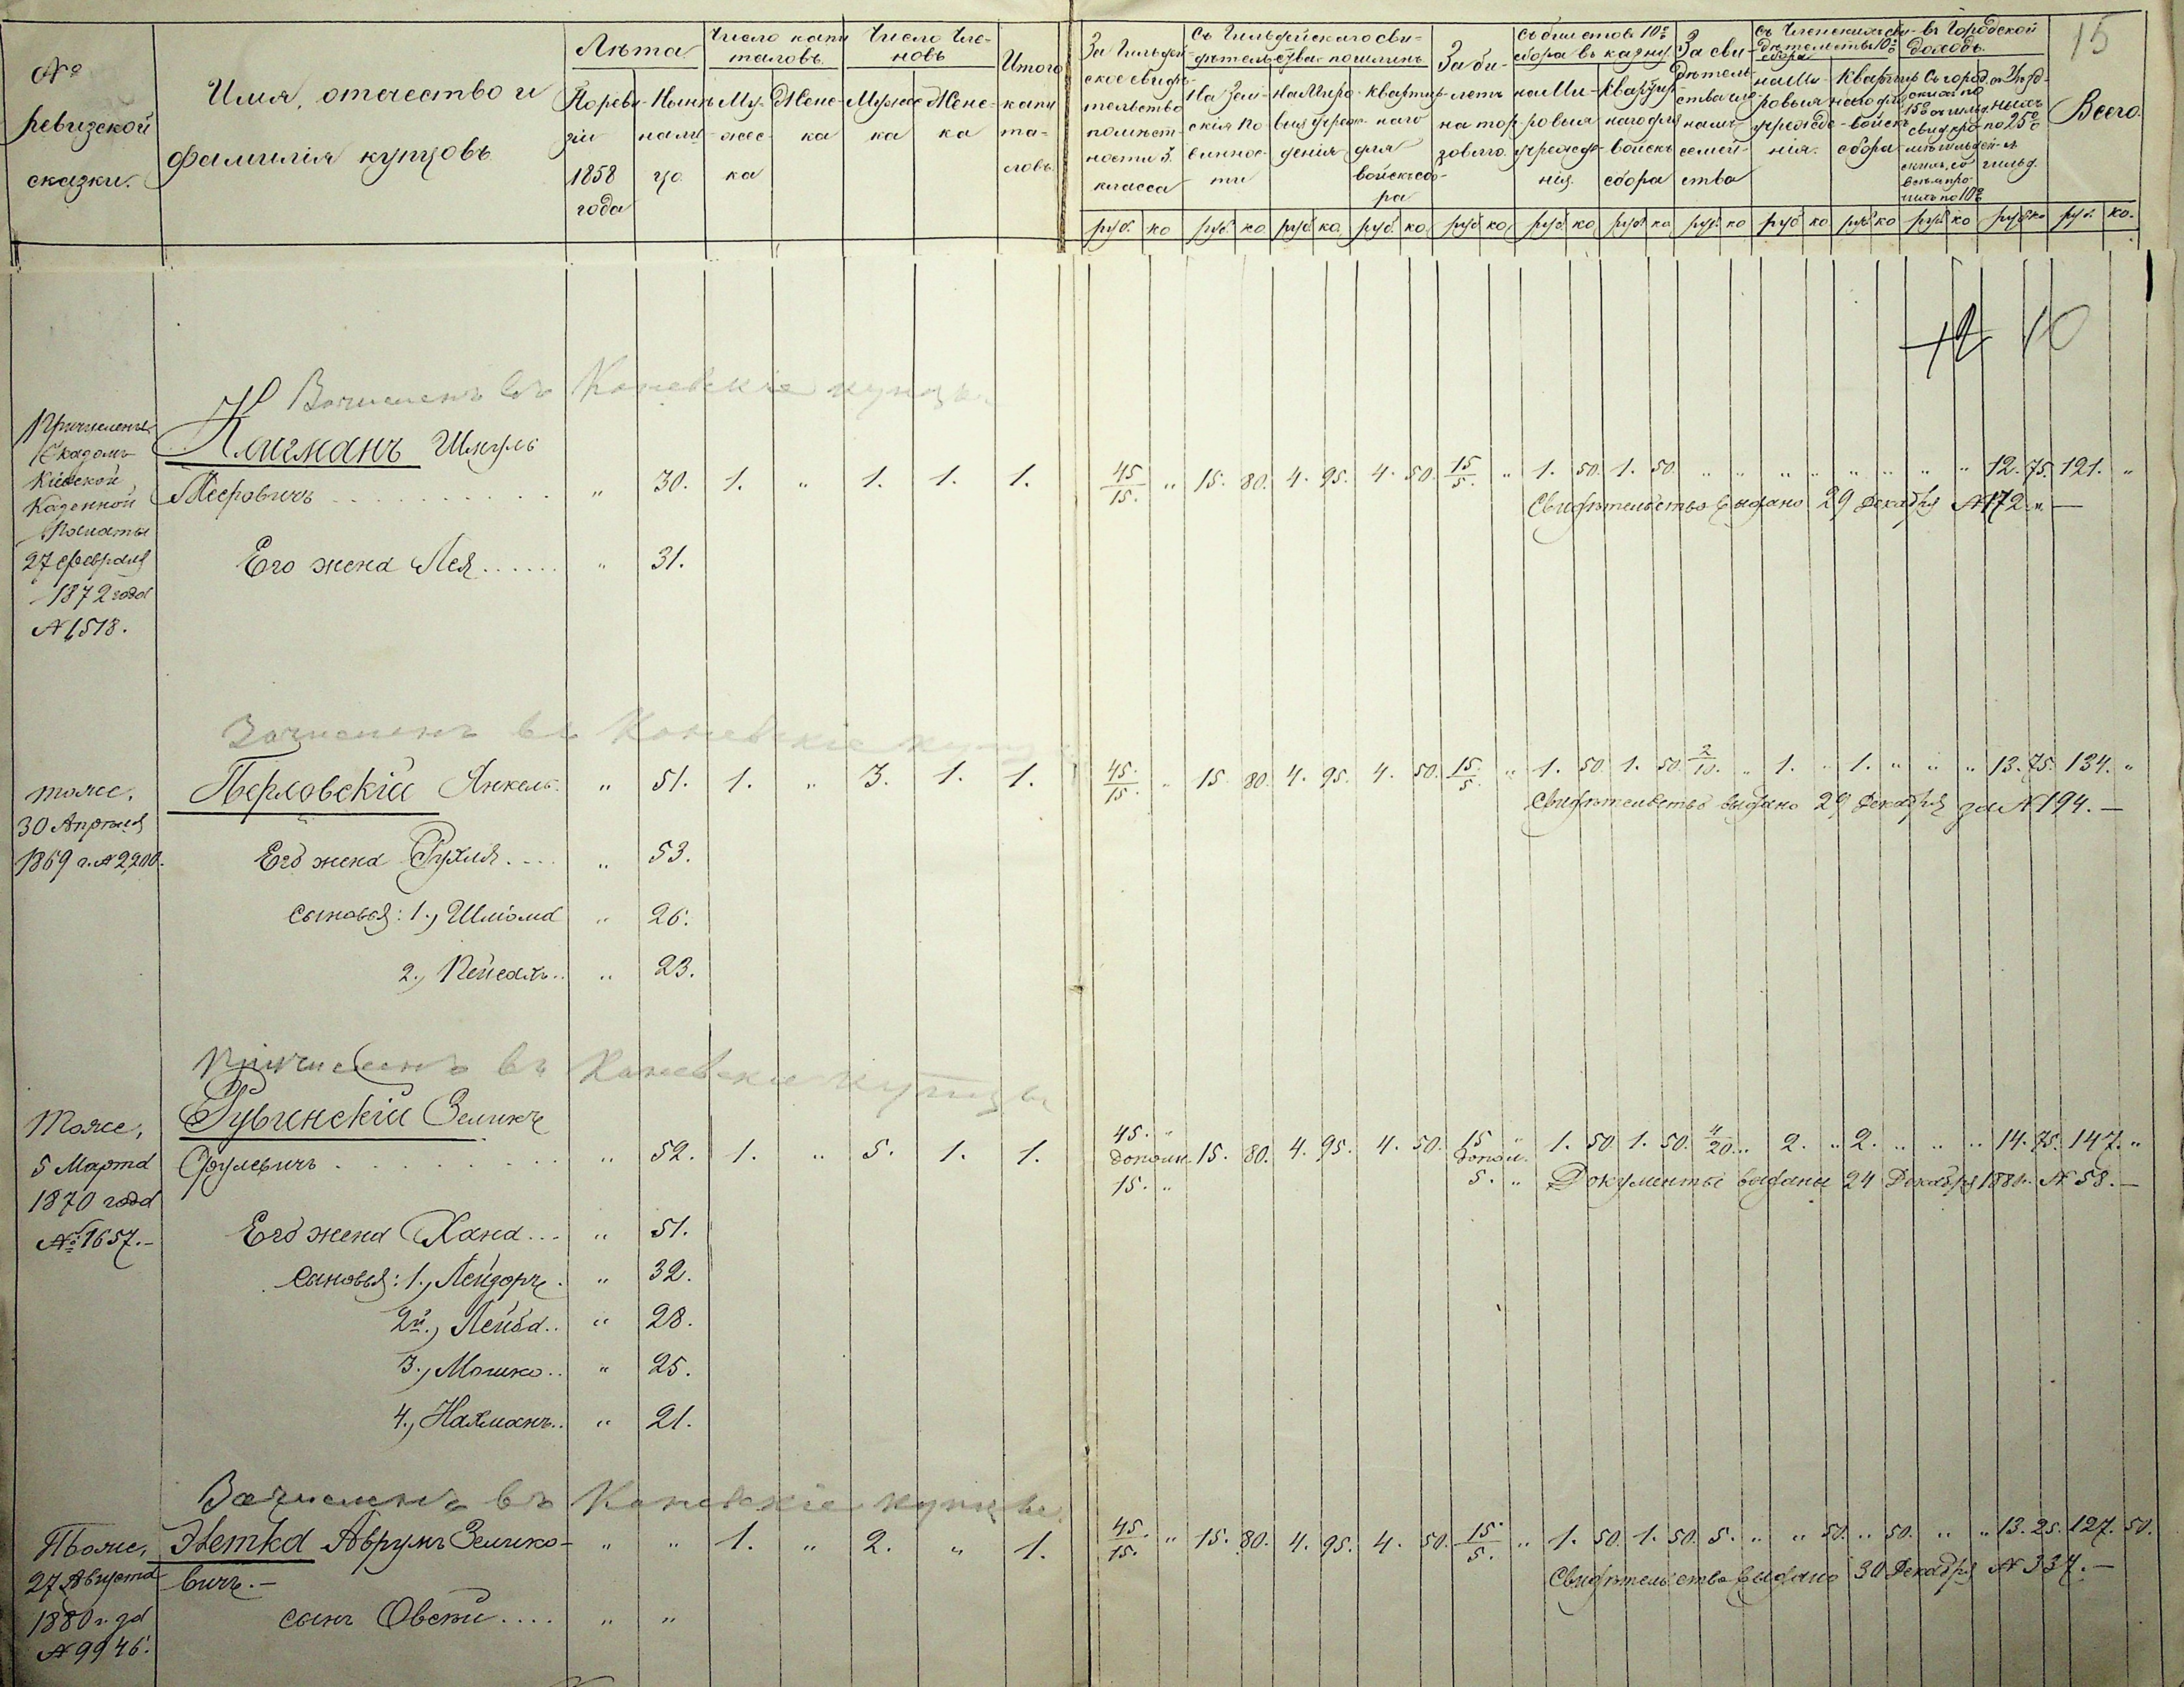 № ревизской сказки.
Имя, отечество и фамилія купцовъ
Лѣта
По ревизіи 1858 года
Нынѣ налицо
Число капиталовъ
Мужеска
Женска
Число членовъ
Мужеска
Женска
Итого капиталовъ
За Гильдейское свидѣтельство помѣстности 3. класса
Съ Гильдейскаго свидѣтельства пошлинъ
На Земскія повинности
На Мировыя учрежденія
Квартирнаго для войскъ сбора
За билетъ на торговлю
Съ билетовъ 10% сбора въ казну
на Мировыя учрежденія
Квартирнаго для войскъ сбора
За свидѣтельства членамъ семейства
на Мировыя учрежденія
Квартирнаго для войскъ сбора
въ Городской доходъ
Всего
15
руб. ко руб. ко руб. ко руб. ко руб. ко руб. ко руб. ко руб. ко руб. ко руб. ко руб. ко руб. ко руб. ко.
12 10
Зачисленъ въ Каневскіе купцы
Причисленъ
Указомъ
Кіевской
Казенной
Палаты
27 Февраля
1872 года
№ 1,518.
Клигманъ Шмуль
Мееровичъ „ 30. 1. „ 1. 1. 1. 45/15. „ 15. 80. 4. 95. 4. 50. 15/5. „ 1. 50. 1. 50. „ „ „ „ „ „ „ „ 12. 75. 121. „
Свидѣтельство выдано 29 Декабря № 172. —
Его жена Лея „ 31.
Зачисленъ въ Каневскіе купцы
тоже,
30 Апрѣля
1869 г. № 2,200.
Перловскій Янкель „ 51. 1. „ 3. 1. 1. 45./15. „ 15. 80. 4. 95. 4. 50. 15./5. „ 1. 50. 1. 50. 2/10. „ 1. „ 1. „ „ „ 13. 75. 134. „
Свидѣтельство выдано 29 Декабря за № 194. —
Его жена Рухля „ 53.
Сыновья: 1., Шліома „ 26.
2., Пейсахъ „ 23.
Причисленъ въ Каневскіе купцы
Тоже,
5 Марта
1870 года
№ 1657. —
Рувинскій Зеликъ
Срулевичъ „ 52. 1. „ 5. 1. 1. 45. „ дополн. 15. „ 15. 80. 4. 95. 4. 50. 15 „ дополн. 5. „ 1. 50 1. 50. 4/20. „ 2. „ 2. „ „ „ 14. 75. 147. „
Документы выданы 24 Декабря 1880 г. № 58. —
Его жена Хана „ 51.
Сыновья: 1., Лейзоръ „ 32.
2й., Лейба „ 28.
3., Мошко „ 25.
4., Нахманъ „ 21.
Зачисленъ въ Каневскіе купцы
Тоже,
27 Августа
1880 года
№ 9946.
Немка Аврумъ Зелико- „ „ 1. „ 2. „ 1. 45./15. „ 15. 80. 4. 95. 4. 50. 15./5. „ 1. 50. 1. 50. 5. „ „ 50. „ 50. „ „ 13. 25. 127. 50.
вичъ. —
Свидѣтельство выдано 30 Декабря № 337. —
сынъ Овсѣй „ „